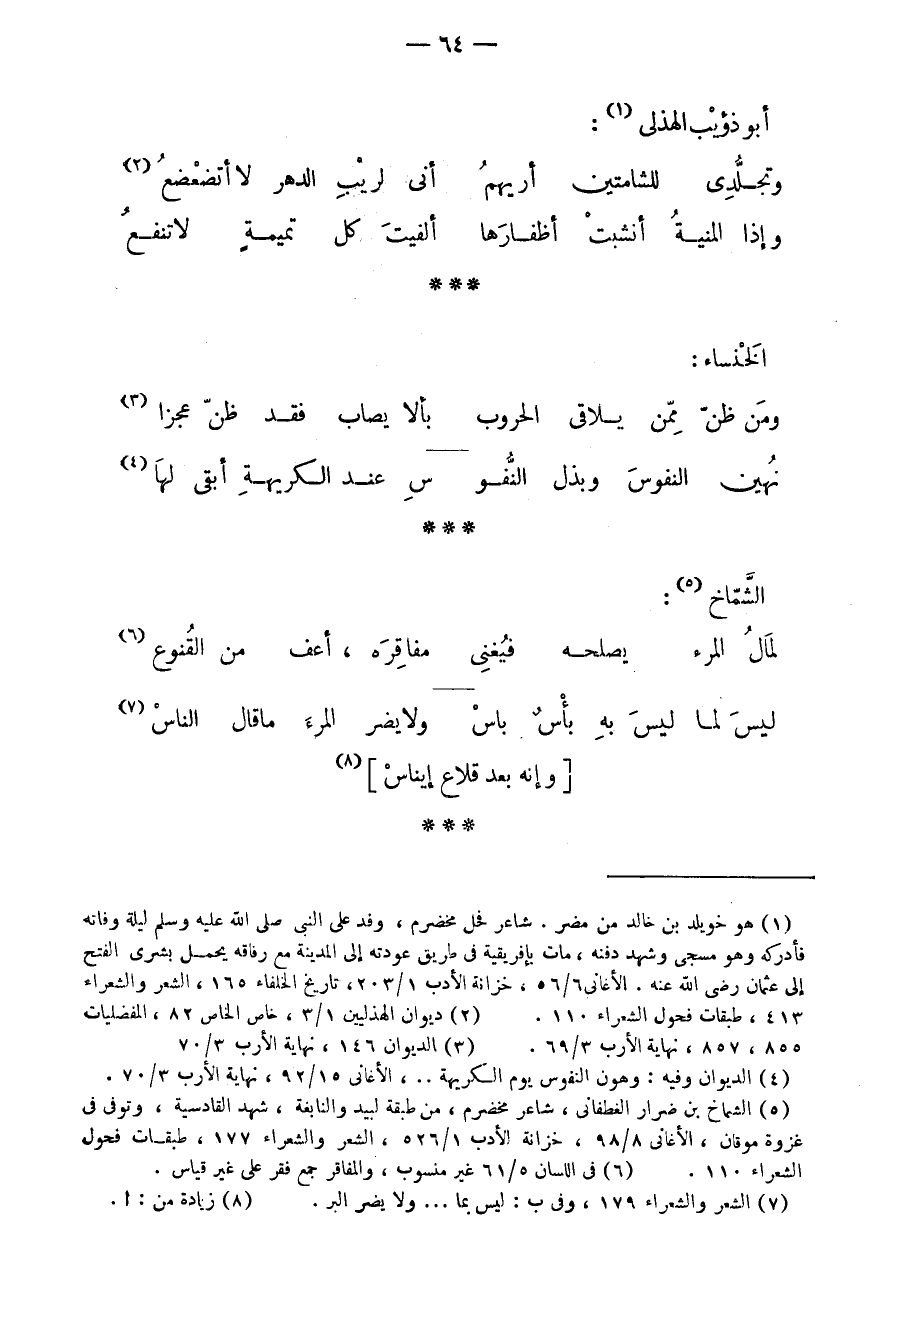 — ٦٤ —
أبو ذؤيْب الهذلى (١) :
وتجلُّدِى للشامتين أريهمُ أنى لريْبِ الدهر لا أتضعْضعُ (٢)
وإذا المنيةُ أنشبتْ أظفارَها ألفيتَ كل تميمةٍ لاتنفعُ
***
الخَنْساء :
ومَن ظنّ مِمّن يلاقى الحروب بألا يصاب فقد ظنّ عجزا (٣)
نُهين النفوسَ وبذل النُّفو سِ عند الكريهةِ أبقى لهَا (٤)
***
الشَّمّاخ (٥) :
لمَالُ المرء يصلحه فيُغنِى مفاقِرَه ، أعف من القُنوع (٦)
ليسَ لما ليسَ بهِ بأْسٌ باسْ ولايضر المرءَ ماقال الناسْ (٧)
[ وإنه بعد قلاع إيناسْ ] (٨)
***
(١) هو خويلد بن خالد من مضر . شاعر فحل مخضرم ، وفد على النبى صلى الله عليه وسلم ليلة وفاته
فأدركه وهو مسجى وشهد دفنه ، مات بإفريقية فى طريق عودته إلى المدينة مع رفاقه يحمل بشرى الفتح
إلى عثمان رضى الله عنه . الأغانى ٥٦/٦ ، خزانة الأدب ٢٠٣/١ ، تاريخ الخلفاء ١٦٥ ، الشعر والشعراء
٤١٣ ، طبقات فحول الشعراء ١١٠ . (٢) ديوان الهذليين ٣/١ ، خاص الخاص ٨٢ ، المفضليات
٨٥٥ ، ٨٥٧ ، نهاية الأرب ٦٩/٣ . (٣) الديوان ١٤٦ ، نهاية الأرب ٧٠/٣
(٤) الديوان وفيه : وهون النفوس يوم الكريهة .. ، الأغانى ٩٢/١٥ ، نهاية الأرب ٧٠/٣ .
(٥) الشماخ بن ضرار الغطفانى ، شاعر مخضرم ، من طبقة لبيد والنابغة ، شهد القادسية ، وتوفى فى
غزوة موقان ، الأغانى ٩٨/٨ ، خزانة الأدب ٥٢٦/١ ، الشعر والشعراء ١٧٧ ، طبقات فحول
الشعراء ١١٠ . (٦) فى اللسان ٦١/٥ غير منسوب ، والمفاقر جمع فقر على غير قياس .
(٧) الشعر والشعراء ١٧٩ ، وفى ب : ليس بما ... ولا يضر البر . (٨) زيادة من : ا .